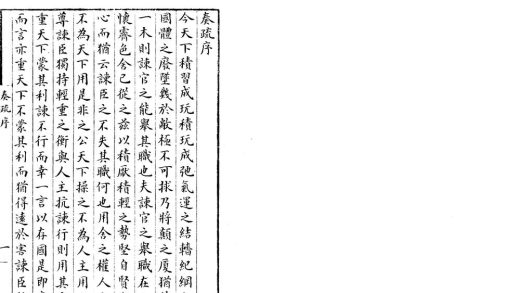 奏疏序
今天下積習成玩積玩成弛氣運之結轖紀綱
國體之廢墜幾於敝極不可捄乃將顛之厦猶
一木則諫官之能舉其職也夫諫官之舉職在
懷齋色舍己從之茲以積厭積輕之勢堅自賢
心而猶云諫臣之不失其職何也用舍之權人
不為天下用是非之公天下操之不為人主用
尊諫臣獨持輕重之衡與人主抗諫行則用其
重天下蒙其利諫不行而幸一言以存國是即
而言亦重天下不蒙其利而猶得遠於害諫臣
奏疏序
一